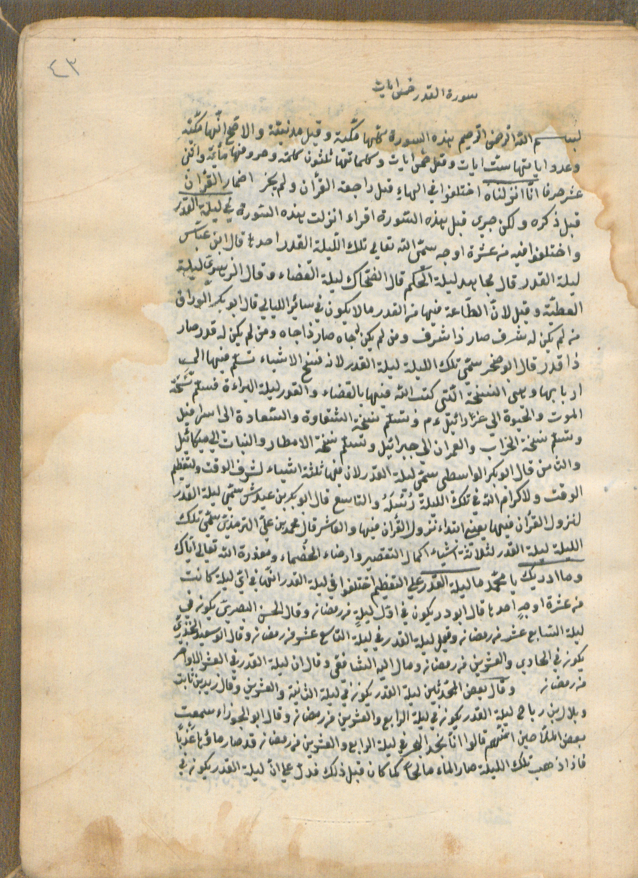 ٤٣
سورة القدر خمس ايات
بسم الله الرحمن الرحيم بهذه السورة كلها مكية وقيل مدنية والاصح انها مكية
وعدد اياتها ست ايات وقيل خمس ايات وكلماتها ثلثون كلمة وحروفها مائة واثنى
عشر حرفا انا انزلناه اختلفوا في الهاء قيل راجعة القرآن ولم يجز اضمار القرآن
قبل ذكره ولكن جرى قبل بهذه السورة اقراء انزلت بهذه السورة في ليلة القدر
واختلفوا فيه من عشرة اوجه سمى الله تعالى تلك الليلة القدر احدها قال ابن عباس
ليلة القدر قال مجاهد ليلة الحكم قال الضحاك ليلة القضاء وقال الزهري ليلة
العظمة وقيل لان الطاعة فيها من القدر ما لا يكون في سائر الليالي قال ابو بكر الوراق
من لم يكن له شرف صار ذا شرف ومن لم يكن له جاه صار ذا جاه ومن لم يكن له قدر صار
ذا قدر قال ابو سمى تلك الليلة ليلة القدر لان نسخ الاشياء تسلم فيها الى
اربابها وهى النسخة التى كتب الله فيها بالقضاء والقدر ليلة البراءة فسلم نسخة
الموت والحيوة الى عزرائيل وتسلم نسخة الشقاوة والسعادة الى اسرافيل
وتسلم نسخة الخراب والعمران الى جبرائيل وتسلم نسخة الامطار والنبات الى ميكائيل
والثامن قال ابو بكر الواسطى سمى ليلة القدر لان فيها ثلثة اشياء لشرف الوقت ولتعظيم
الوقت ولاكرام الله في تلك الليلة والتاسع قال ابو بكر بن سمى ليلة القدر
لنزول القرآن فيها يعنى ابتداء نزول القرآن فيها والعاشر قال محمد بن على الترمذى سمى تلك
الليلة ليلة القدر لثلثة اشياء اكمال التقصير وارضاء الخصماء ومعذرة الله تعالى اياك
وما ادريك يا محمد ما ليلة القدر على التعظيم اختلفوا في ليلة القدر انها في اى ليلة كانت
من عشرة اوجه احدها قال ابو ذر يكون في اول ليلة من رمضان وقال الحسن البصرى يكون في
ليلة السابع عشر من رمضان وقيل ليلة القدر في ليلة التاسع عشر من رمضان وقال ابو سعيد الخدرى
يكون في الحادى والعشرين من رمضان ومال اليه الشافعى وقال ان ليلة القدر في العشر الاواخر
من رمضان وقال بعض المحدثين ليلة القدر يكون في ليلة الثالثة والعشرين وقال زيد بن ثابت
وبلال بن رباح ليلة القدر يكون في ليلة الرابع والعشرين من رمضان وقال ابو الجوزاء سمعت
بعض الملاحين انهم قالوا انا نجد البحر في ليلة الرابع والعشرين من رمضان قد صار ماؤها عذبا
فاذا ذهب تلك الليلة صار الماء مالحا كما كان قبل ذلك فدل على ان ليلة القدر يكون في